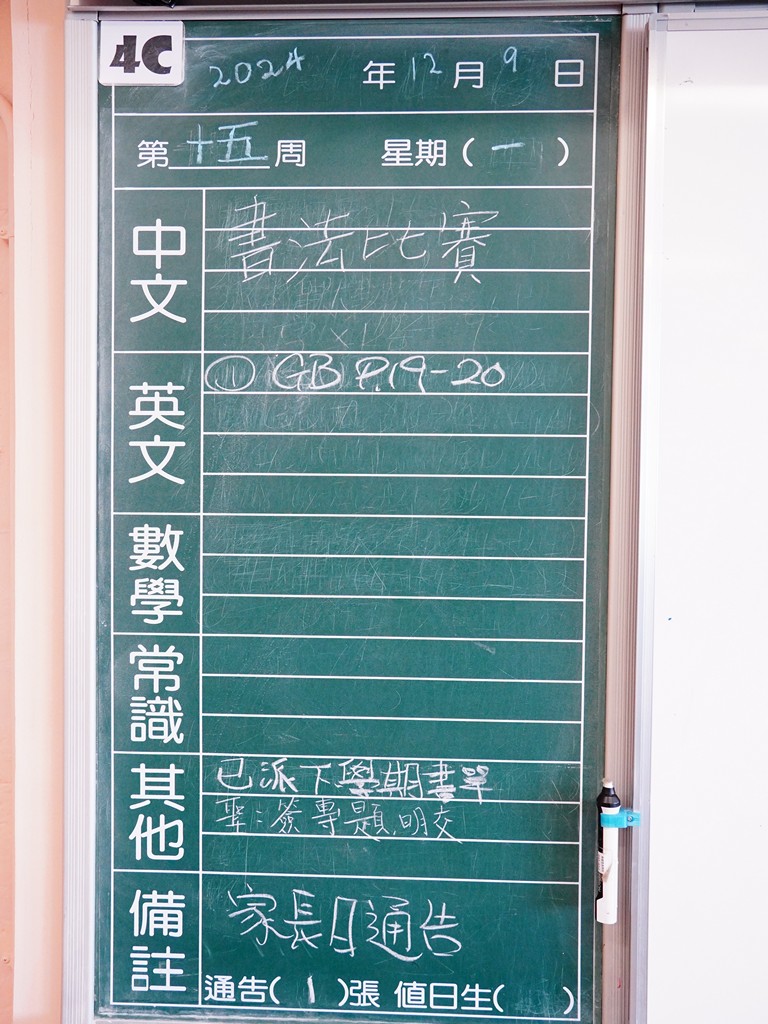 4C
2024 年 12 月 9 日
第 十五 周 星期 ( 一 )
中文
書法比賽
英文
① GB P.19-20
數學
常識
其他
已派下學期書單
聖:簽專題,明交
備註
家長日通告
通告( 1 )張 值日生( )